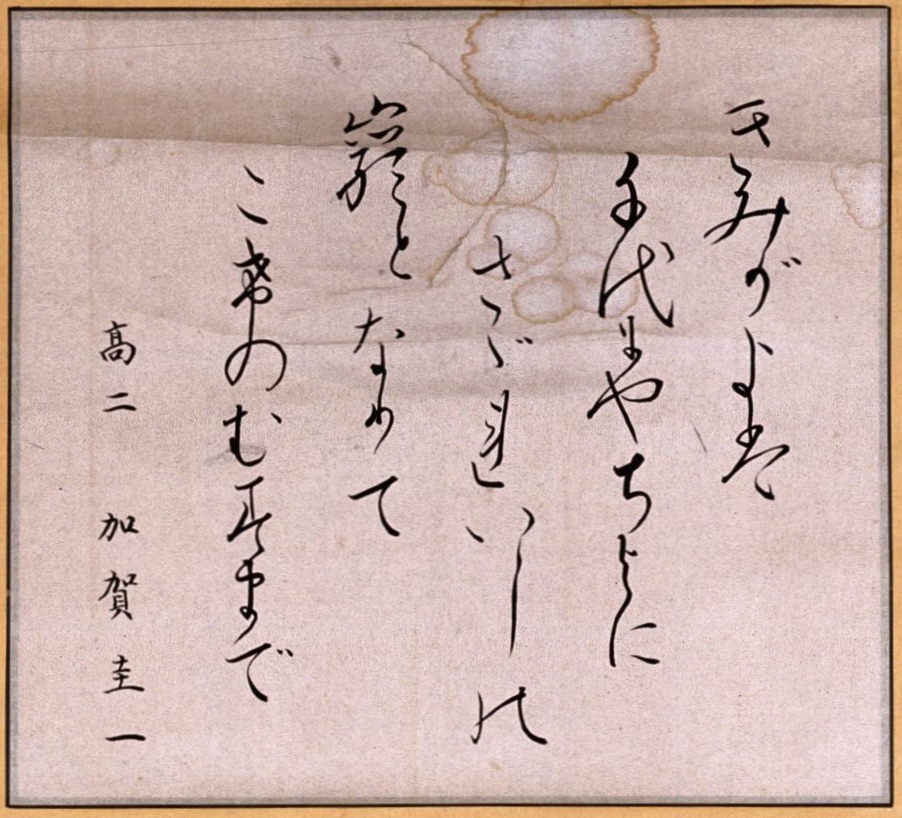 きみがよは
千代にやちよに
さゞれいしの
巌となりて
こけのむすまで
高二 加賀圭一